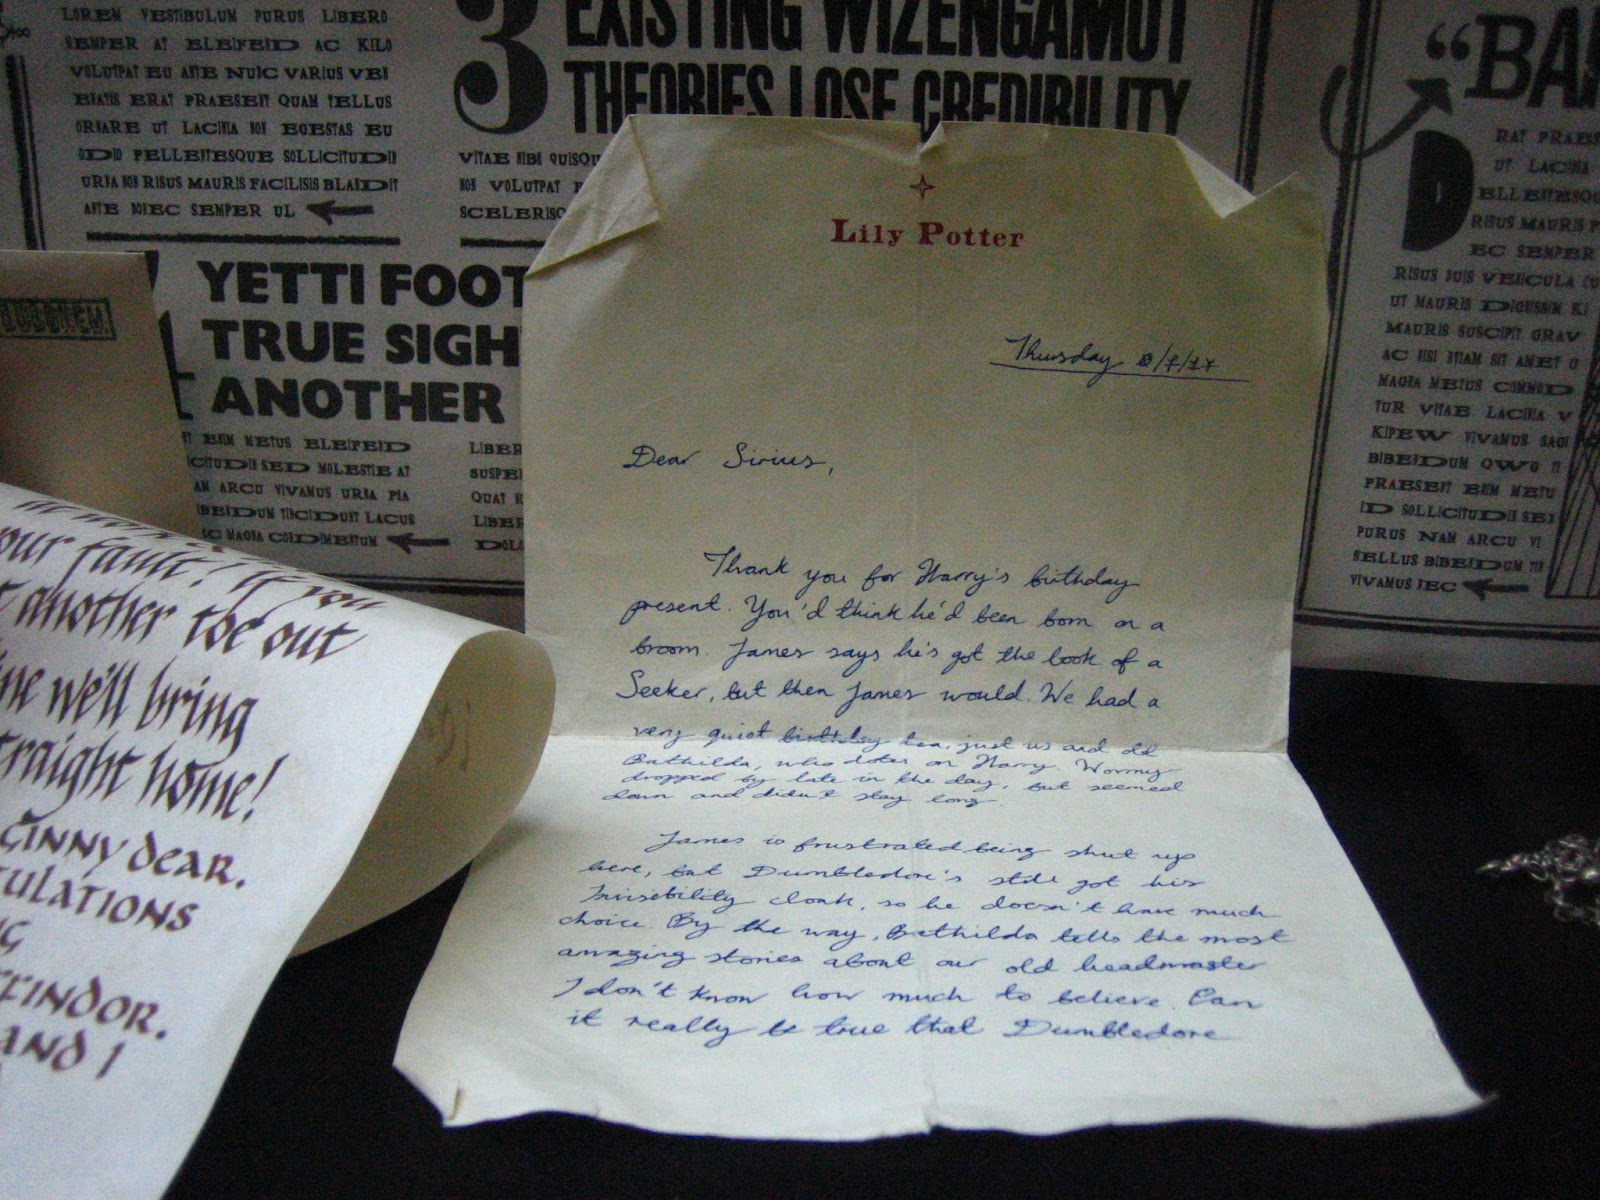 LOREM VESTIBULUM PURUS LIBERO
SEMPER AT ELEIFEID AC KILO
VOLUTPAT EU ANTE NUIC VARIUS VEI
ERAT PRAESEIT QUAM TELLUS
ORNARE UT LACINIA NON EGESTAS EU
ODIO PELLEITESQUE SOLLICITUDII
URIA NON RISUS MAURIS FACILISIS BLAIDIT
ANTE SEMPER UL
YETTI FOOT
TRUE SIGH
ANOTHER
EUM METUS ELEIFEID
SED MOLESTIE AT
AM ARCU VIVAMUS URIA PIA
TINCIDUIT LACUS
MAGIA
3
EXISTING WIZENGAMOT
THEORIES LOSE CREDIBILITY
VITAE NIBI QUISQU
NON VOLUTPAT
SCELERISC
LIBER
SUSPE
QUAT
LIBER
DOLO
"BA
RAT PRAES
UT LACINIA
ELLEITESQU
RISUS MAURIS F
EC SEMPER
RISUS VEHICULA
UT MAURIS DIGNISSIM KI
MAURIS SUSCIPIT GRAV
AC NISI ETIAM SIT AMET U
MAGIA METUS COMMOD
TUR VITAE LACINIA V
KIPEW VIVAMUS SAGI
BIBEIDUM QWO TI
PRAESEIT EUM METU
ID SOLLICITUDII SEI
PURUS NAM ARCU VI
SELLUS BIBEIDUM TIN
VIVAMUS IEC
Lily Potter
Thursday
Dear Sirius,
Thank you for Harry's birthday
present. You'd think he'd been born on a
broom. James says he's got the look of a
Seeker, but then James would. We had a
very quiet birthday tea, just us and old
Bathilda, who dotes on Harry. Wormy
dropped by late in the day, but seemed
down and didn't stay long.
James is frustrated being shut up
here, but Dumbledore's still got his
Invisibility cloak, so he doesn't have much
choice. By the way, Bathilda tells the most
amazing stories about our old headmaster
I don't know how much to believe. Can
it really be true that Dumbledore
your fault! if you
another toe out
we'll bring
straight home!
GINNY DEAR.
ULATIONS
FFINDOR.
AND I